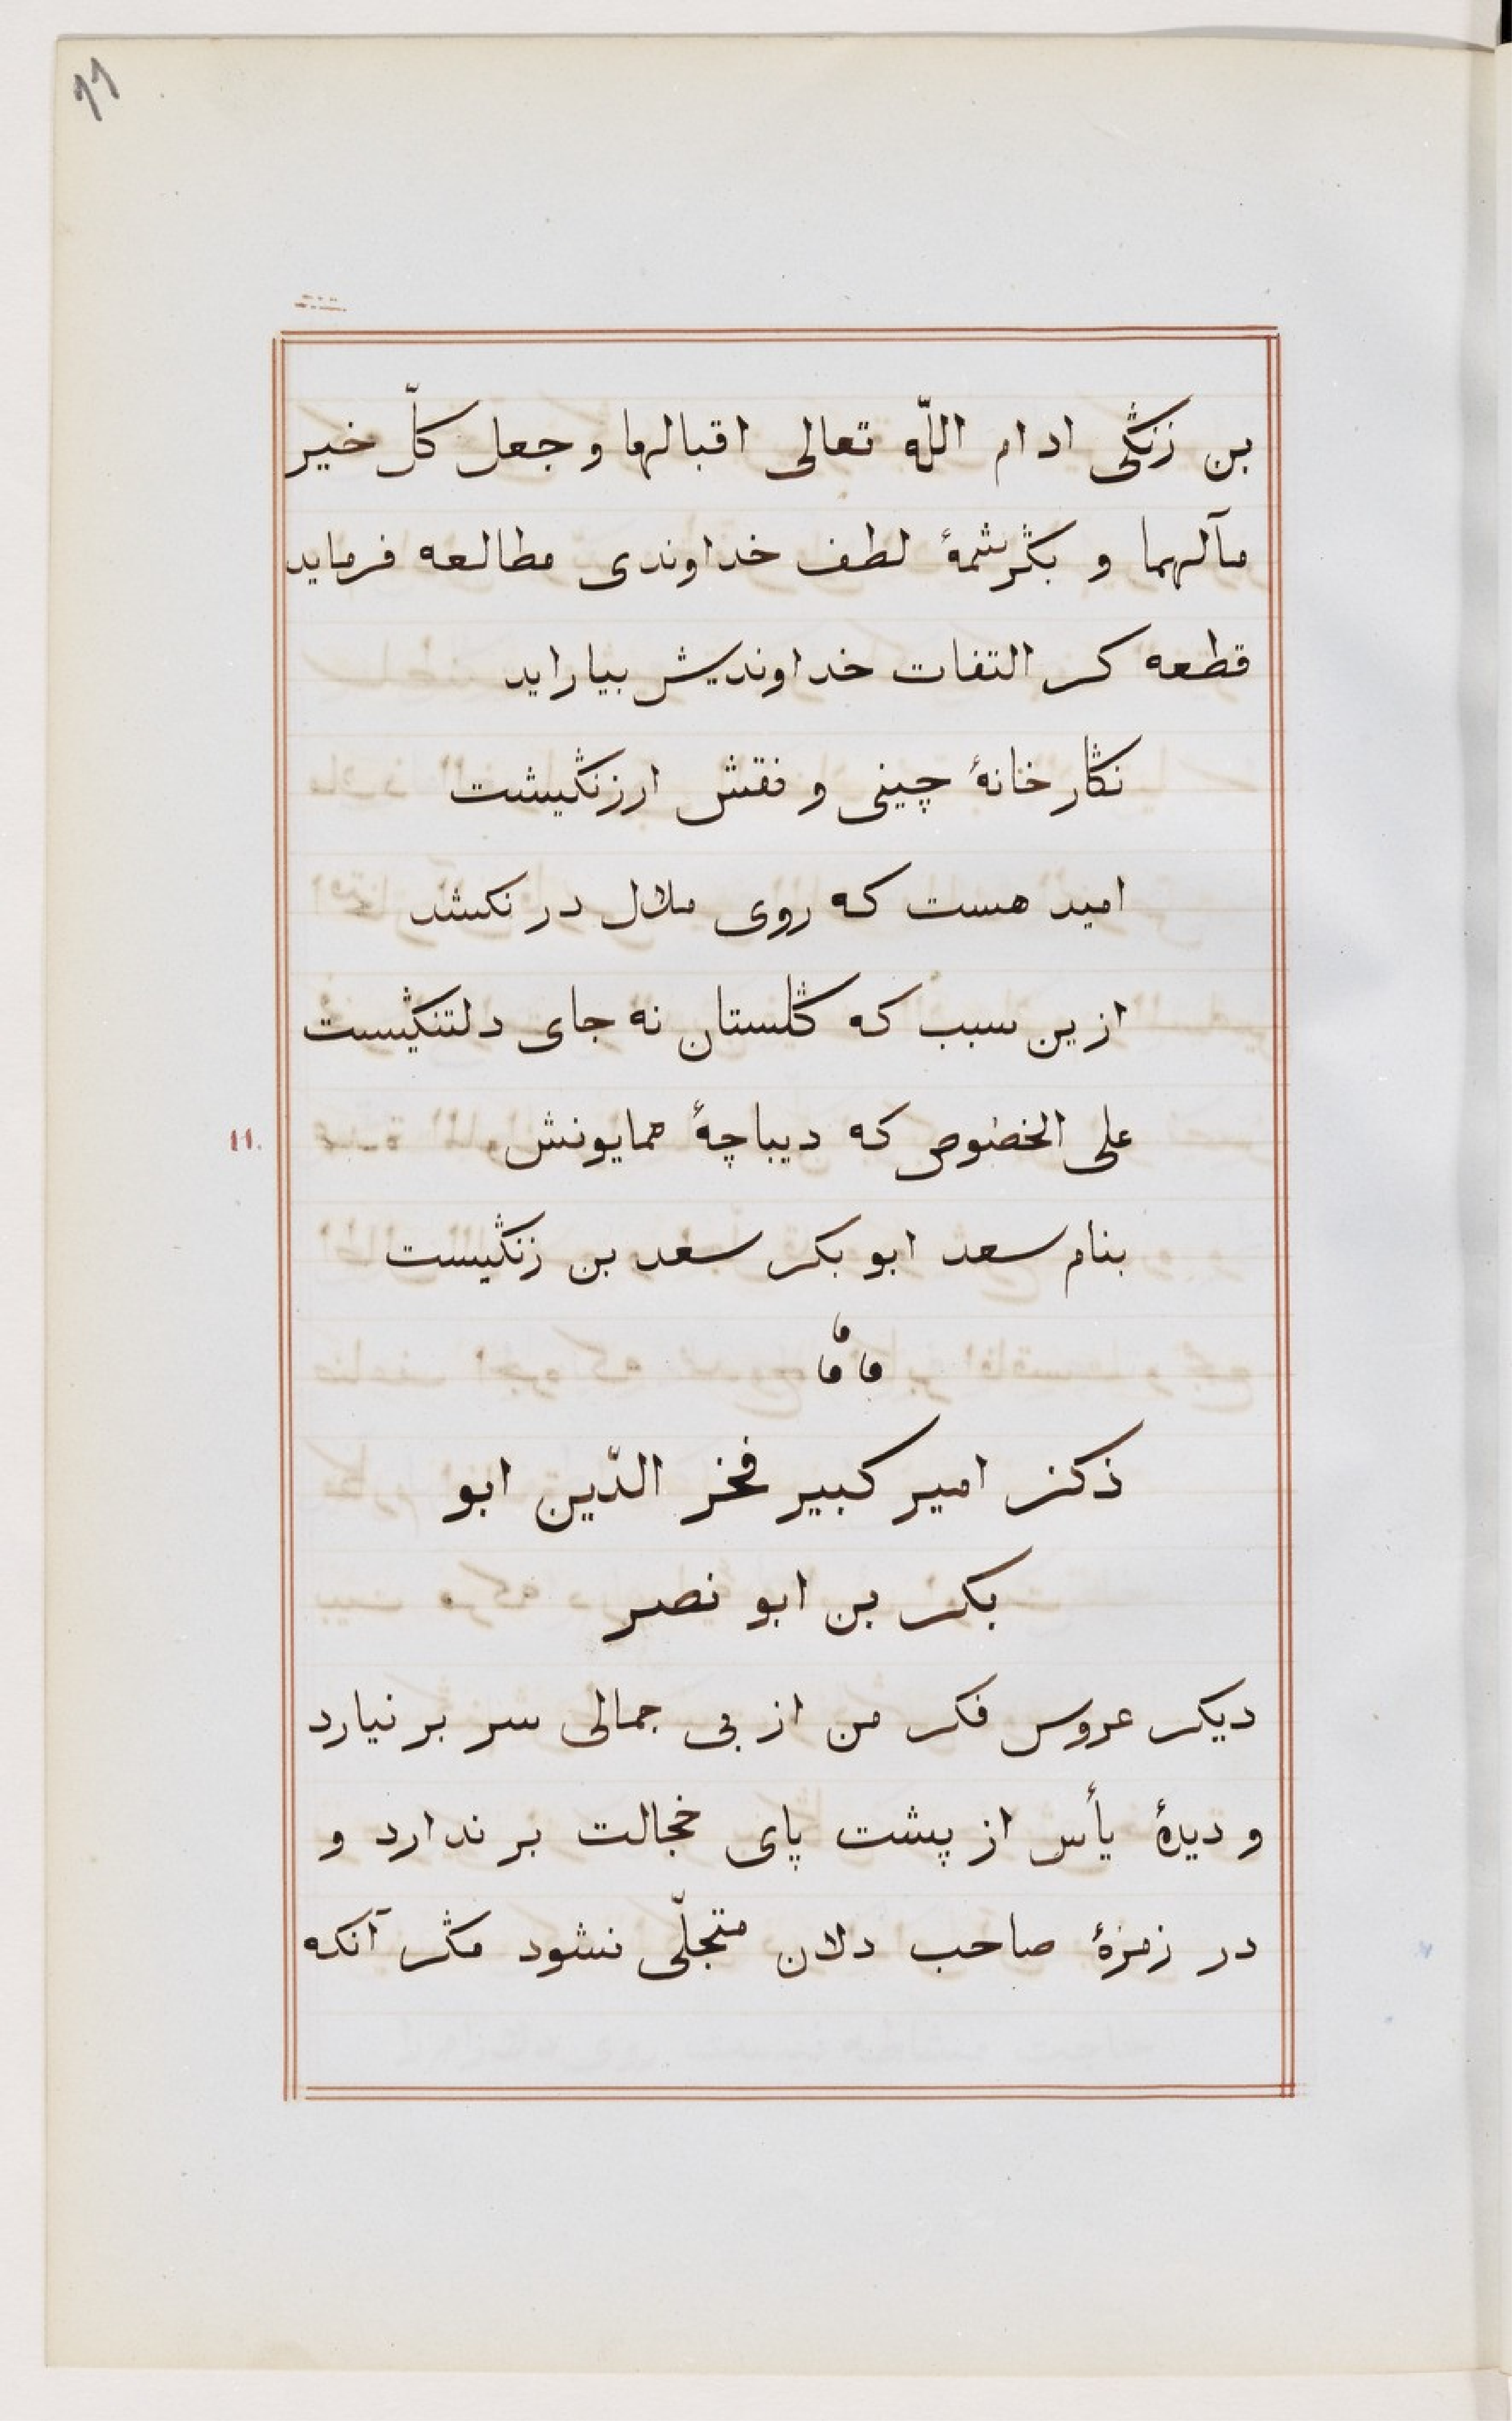 ۱۱
بن زنگی ادام اللّه تعالی اقبالهما و جعل کلّ خیر
مآلهما و بکرشمهٔ لطف خداوندی مطالعه فرماید
قطعه کر التفات خداوندیش بیاراید
نگارخانهٔ چینی و نقش ارزنگیست
امید هست که روی ملال در نکشد
ازین سبب که گلستان نه جای دلتنگیست
علی الخصوص که دیباچهٔ همایونش
11.
بنام سعد ابو بکر سعد بن زنگیست
ذکر امیر کبیر فخر الدّین ابو
بکر بن ابو نصر
دیکر عروس فکر من از بی جمالی سر بر نیارد
و دیدهٔ یأس از پشت پای خجالت بر ندارد و
در زمرهٔ صاحب دلان متجلّی نشود مگر آنکه